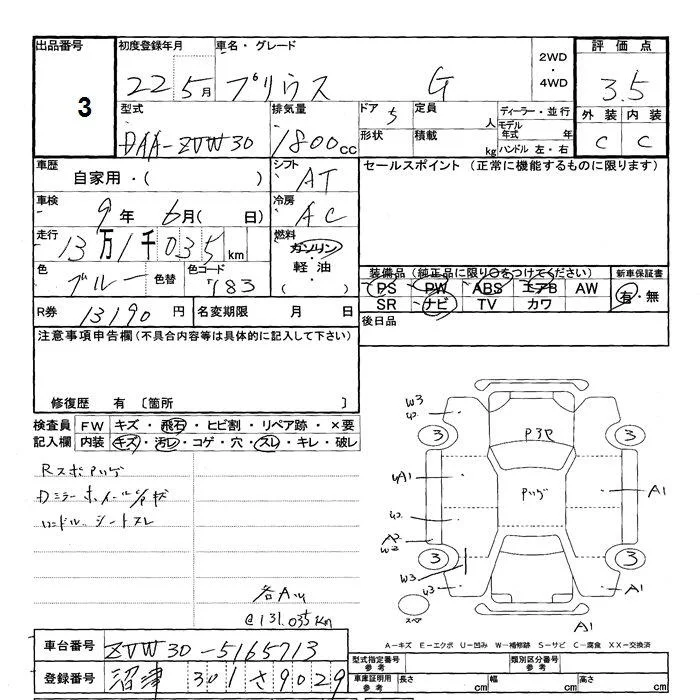 出品番号 3
初度登録年月 22 5月
車名・グレード プリウス G
2WD・4WD
評価点 3.5
外装 内装
C C
型式 DAA-ZVW30
排気量 1800cc
ドア 5 定員 人
形状 積載 kg
ディーラー・並行
モデル年式 年
ハンドル 左・右
車歴 自家用・( )
シフト AT
セールスポイント (正常に機能するものに限ります)
車検 9年 6月( 日)
冷房 AC
走行 13万1千035km
燃料 ガソリン・軽油・( )
色 ブルー 色替 色コード 783
装備品(純正品に限り○をつけてください) 新車保証書
PS PW ABS エアB AW 有・無
SR ナビ TV カワ
R券 13190円 名変期限 月 日
後日品
注意事項申告欄(不具合内容等は具体的に記入して下さい)
修復歴 有 〔箇所 〕
検査員 FW キズ・飛石・ヒビ割・リペア跡・×要
記入欄 内装 キズ・汚レ・コゲ・穴・スレ・キレ・破レ
シートスレ
@131.035km
W3
3 3
A1
A1
A2
3 3
W3
スペア
A1
A-キズ E-エクボ U-凹み W-補修跡 S-サビ C-腐食 XX-交換済
車台番号 ZVW30-5165713
登録番号 沼津 301さ9029
型式指定番号 参考 類別区分番号 参考
車庫証明用 参考 長さ cm 幅 cm 高さ cm